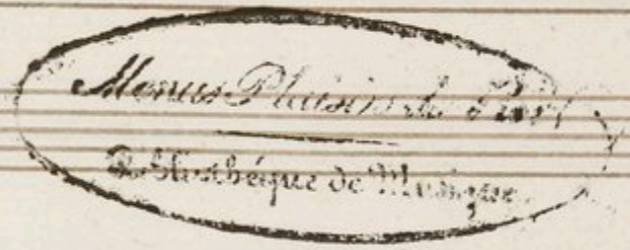 Menus Plaisirs du Roi
Bibliothéque de Musique.